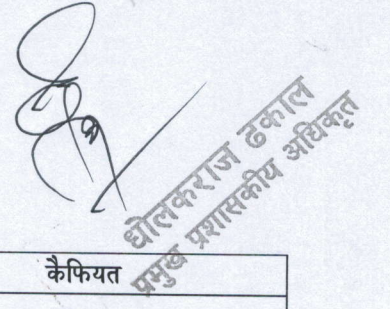 धोलकराज ढकाल
प्रमुख प्रशासकीय अधिकृत
कैफियत